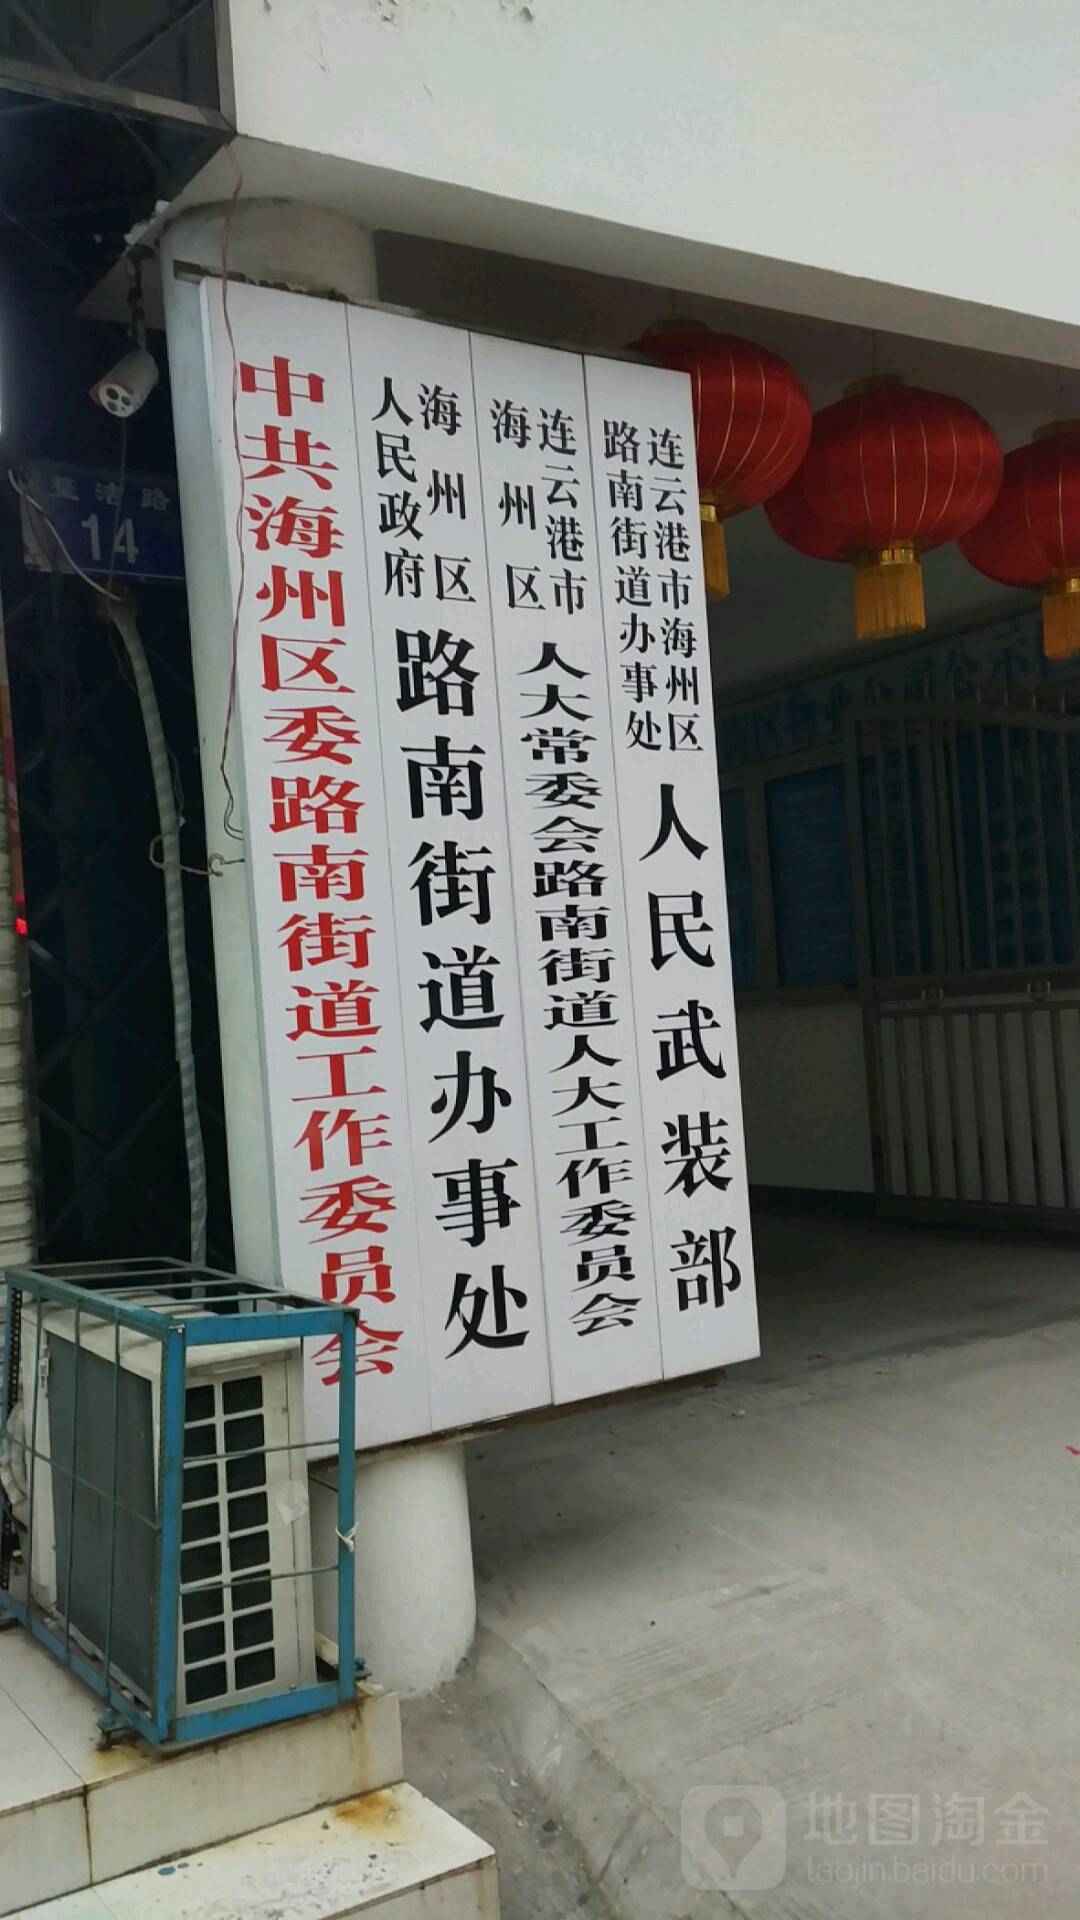 中共海州区委路南街道工作委员会
海州区
人民政府
路南街道办事处
连云港市
海州区
人大常委会路南街道人大工作委员会
连云港市海州区
路南街道办事处
人民武装部
洁路
14
地图淘金
taojin.baidu.com